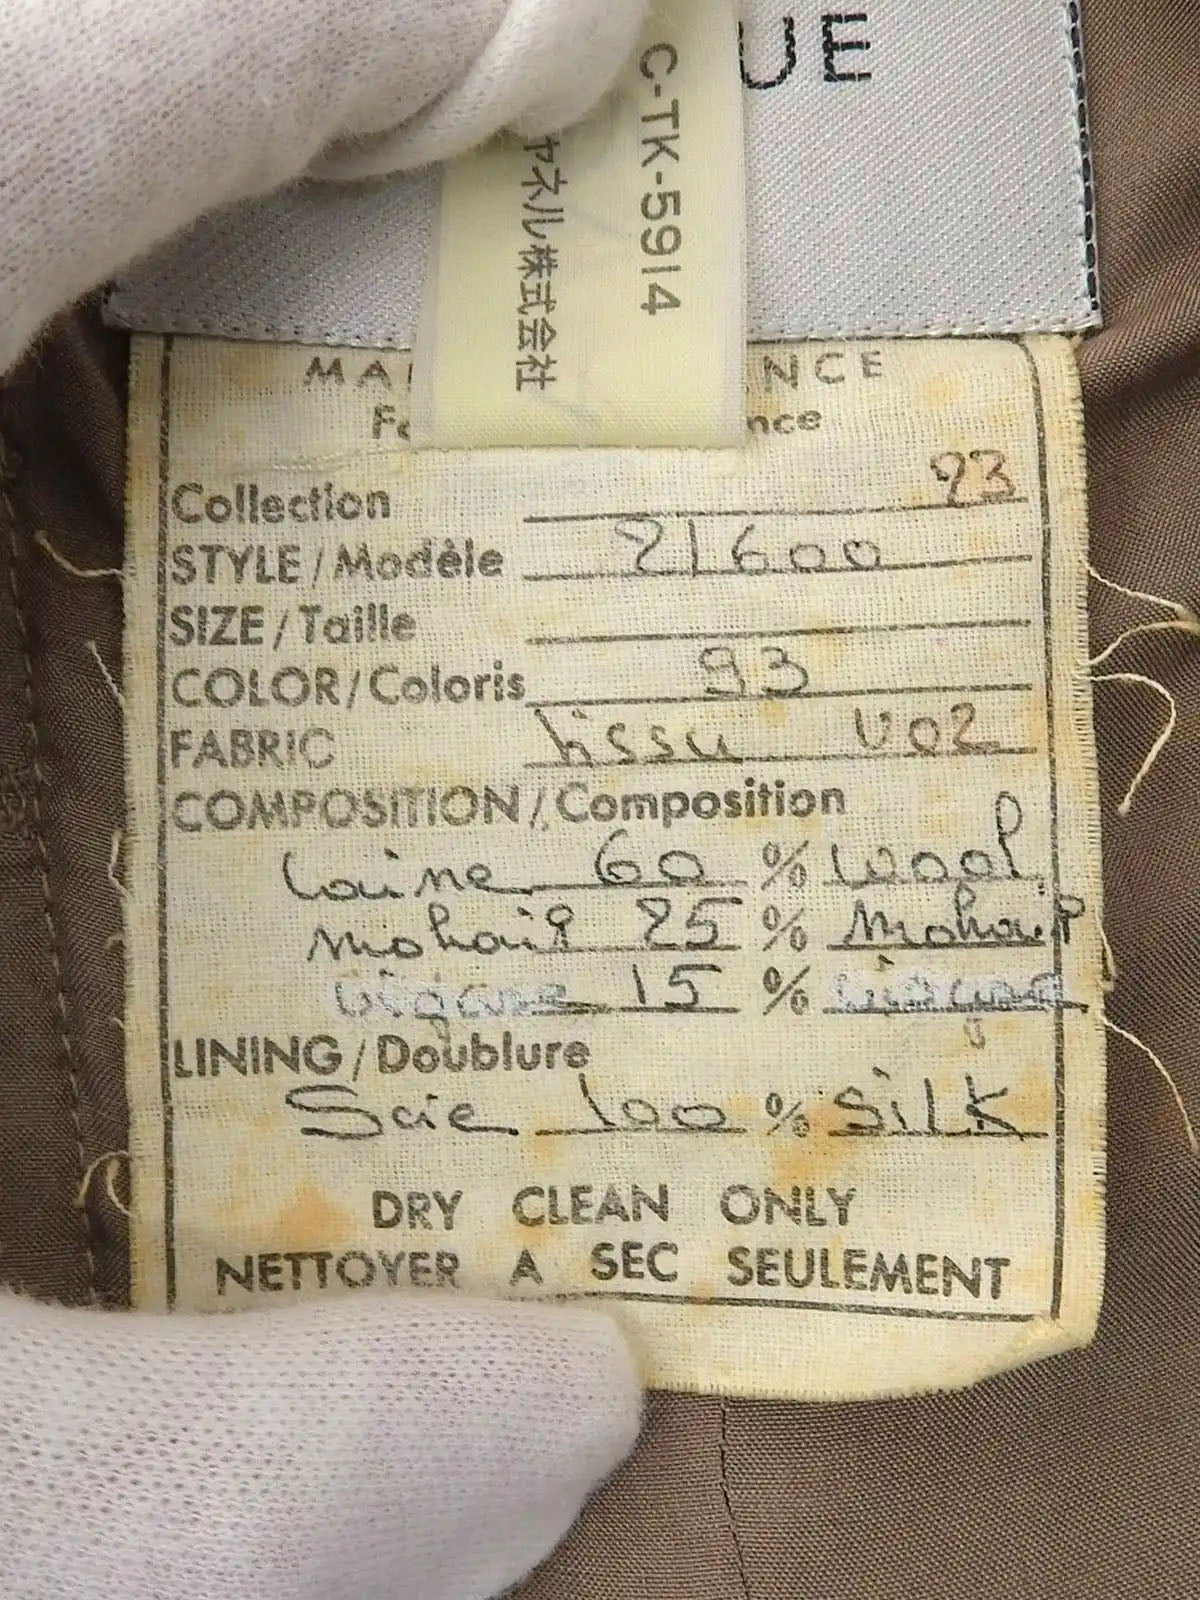 UE
C-TK-5914
ャネル株式会社
MA NCE
Fa nce
Collection 93
STYLE/Modèle 21600
SIZE/Taille
COLOR/Coloris 93
FABRIC tissu V02
COMPOSITION/Composition
laine 60 % wool
mohair 25 % mohair
15 %
LINING/Doublure
Soie 100 % SILK
DRY CLEAN ONLY
NETTOYER A SEC SEULEMENT